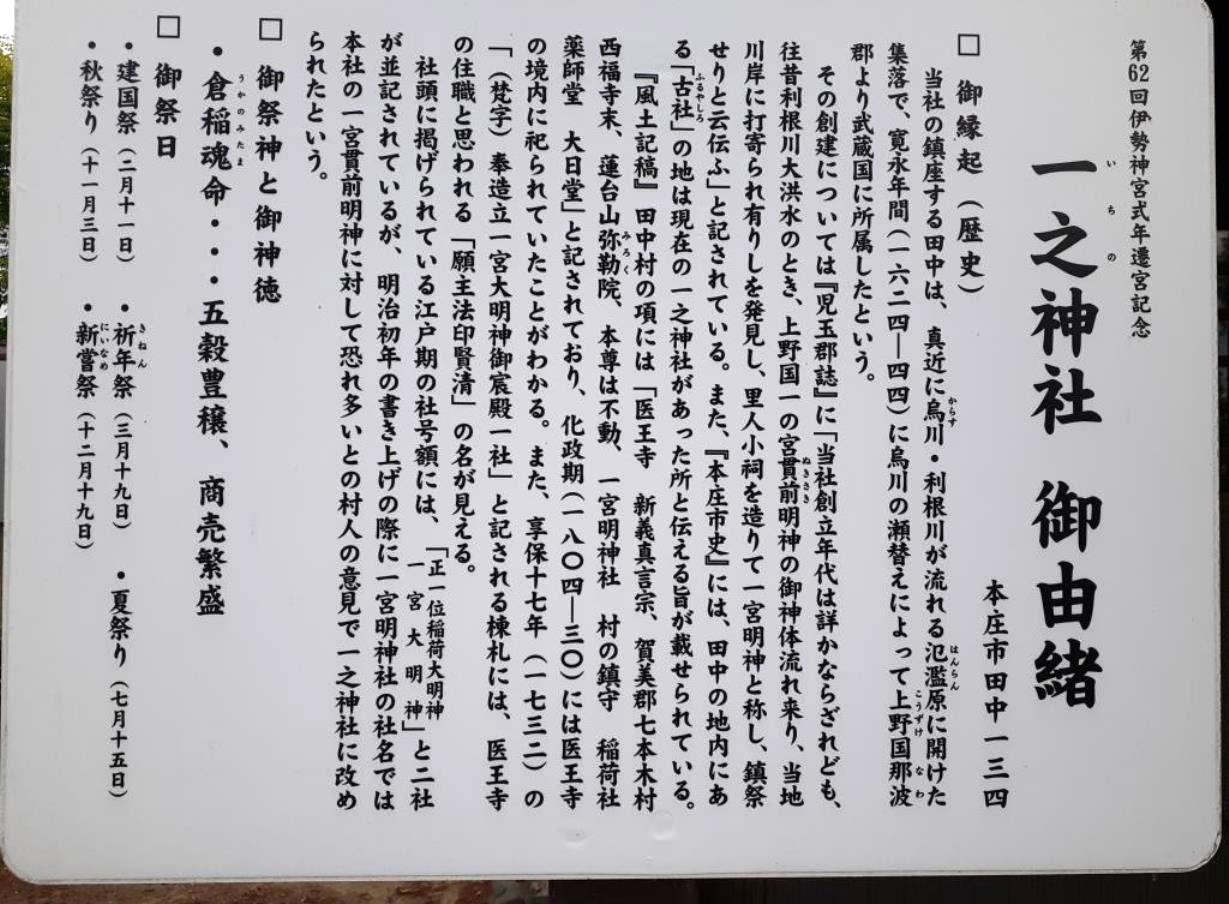 第62回伊勢神宮式年遷宮記念
一之神社 御由緒
いちの
本庄市田中一三四
□ 御縁起（歴史）
当社の鎮座する田中は、真近に烏川・利根川が流れる氾濫原に開けた
からす
はんらん
集落で、寛永年間（一六二四―四四）に烏川の瀬替えによって上野国那波
こうずけ
なわ
郡より武蔵国に所属したという。
その創建については『児玉郡誌』に「当社創立年代は詳かならざれども、
往昔利根川大洪水のとき、上野国一の宮貫前明神の御神体流れ来り、当地
ぬきさき
川岸に打寄られ有りしを発見し、里人小祠を造りて一宮明神と称し、鎮祭
せりと云伝ふ」と記されている。また、『本庄市史』には、田中の地内にあ
る「古社」の地は現在の一之神社があった所と伝える旨が載せられている。
ふるやしろ
『風土記稿』田中村の項には「医王寺 新義真言宗、賀美郡七本木村
西福寺末、蓮台山弥勒院、本尊は不動、一宮明神社 村の鎮守 稲荷社
みろく
薬師堂 大日堂」と記されており、化政期（一八〇四―三〇）には医王寺
の境内に祀られていたことがわかる。また、享保十七年（一七三二）の
「（梵字）奉造立一宮大明神御宸殿一社」と記される棟札には、医王寺
の住職と思われる「願主法印賢清」の名が見える。
社頭に掲げられている江戸期の社号額には、「正一位稲荷大明神
一宮大明神」と二社
が並記されているが、明治初年の書き上げの際に一宮明神社の社名では
本社の一宮貫前明神に対して恐れ多いとの村人の意見で一之神社に改め
られたという。
□ 御祭神と御神徳
・倉稲魂命・・・五穀豊穣、商売繁盛
うかのみたま
□ 御祭日
・建国祭（二月十一日） ・祈年祭（三月十九日） ・夏祭り（七月十五日）
きねん
・秋祭り（十一月三日） ・新嘗祭（十二月十九日）
にいなめ